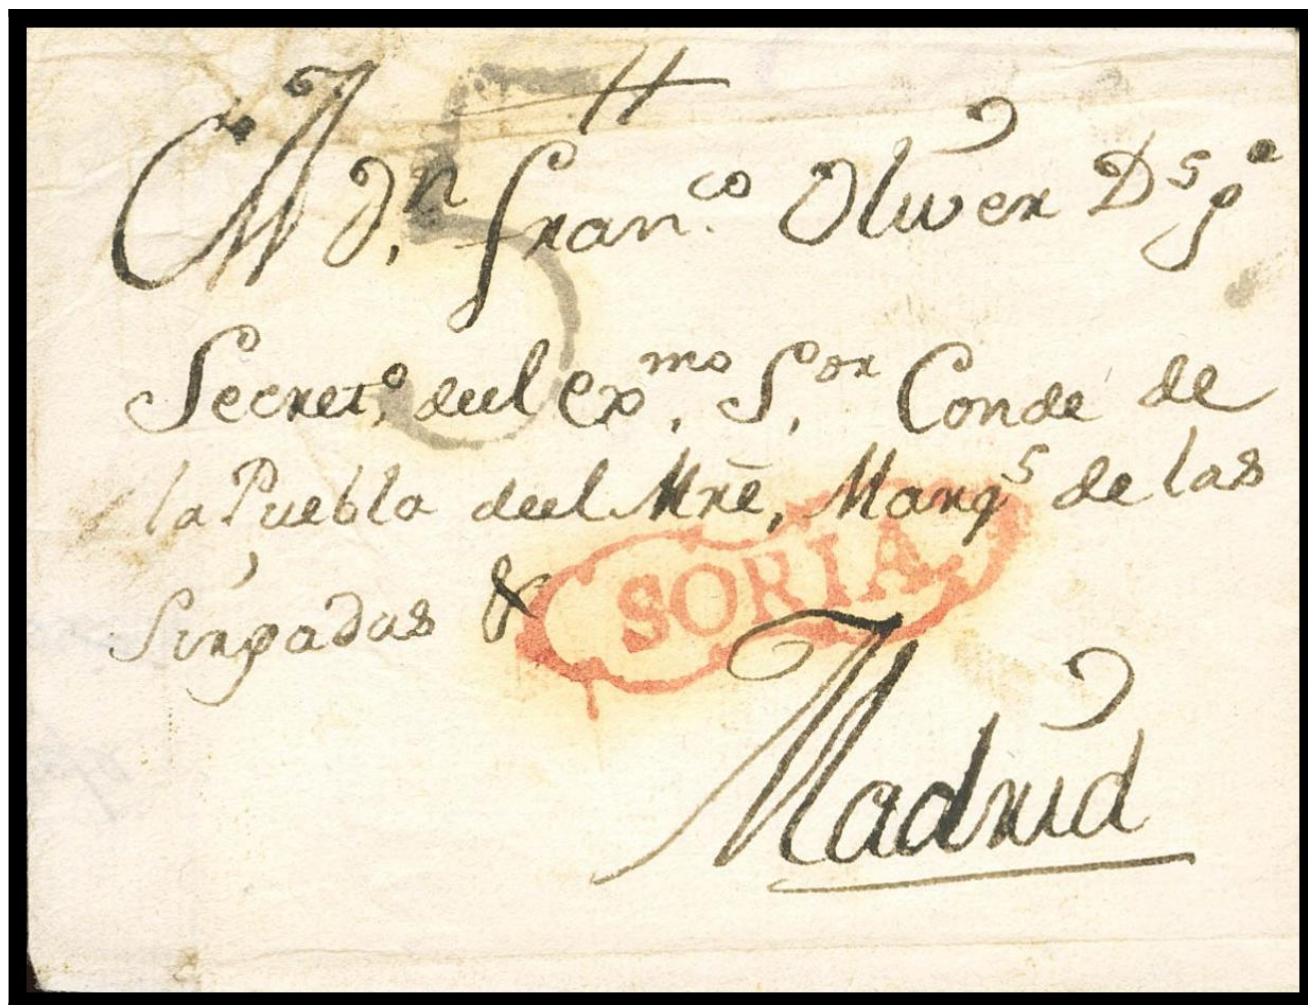 A D.n Fran.co Oliver D.s g.e
Secret.o del ex.mo S.or Conde de
la Puebla del Mrē, Marq.s de las
&
SORIA
Madrid
5